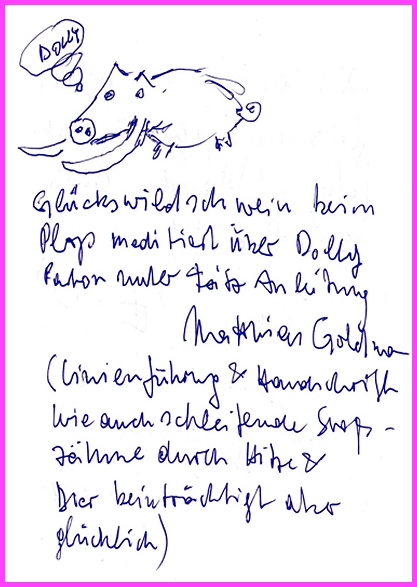 Dolly
Glückswildschwein beim
Plop meditiert über Dolly
Parton unter Anleitung
Matthias
(Linienführung & Handschrift
wie auch schleifende
zähne durch Hitze &
beinträchtigt aber
glücklich)